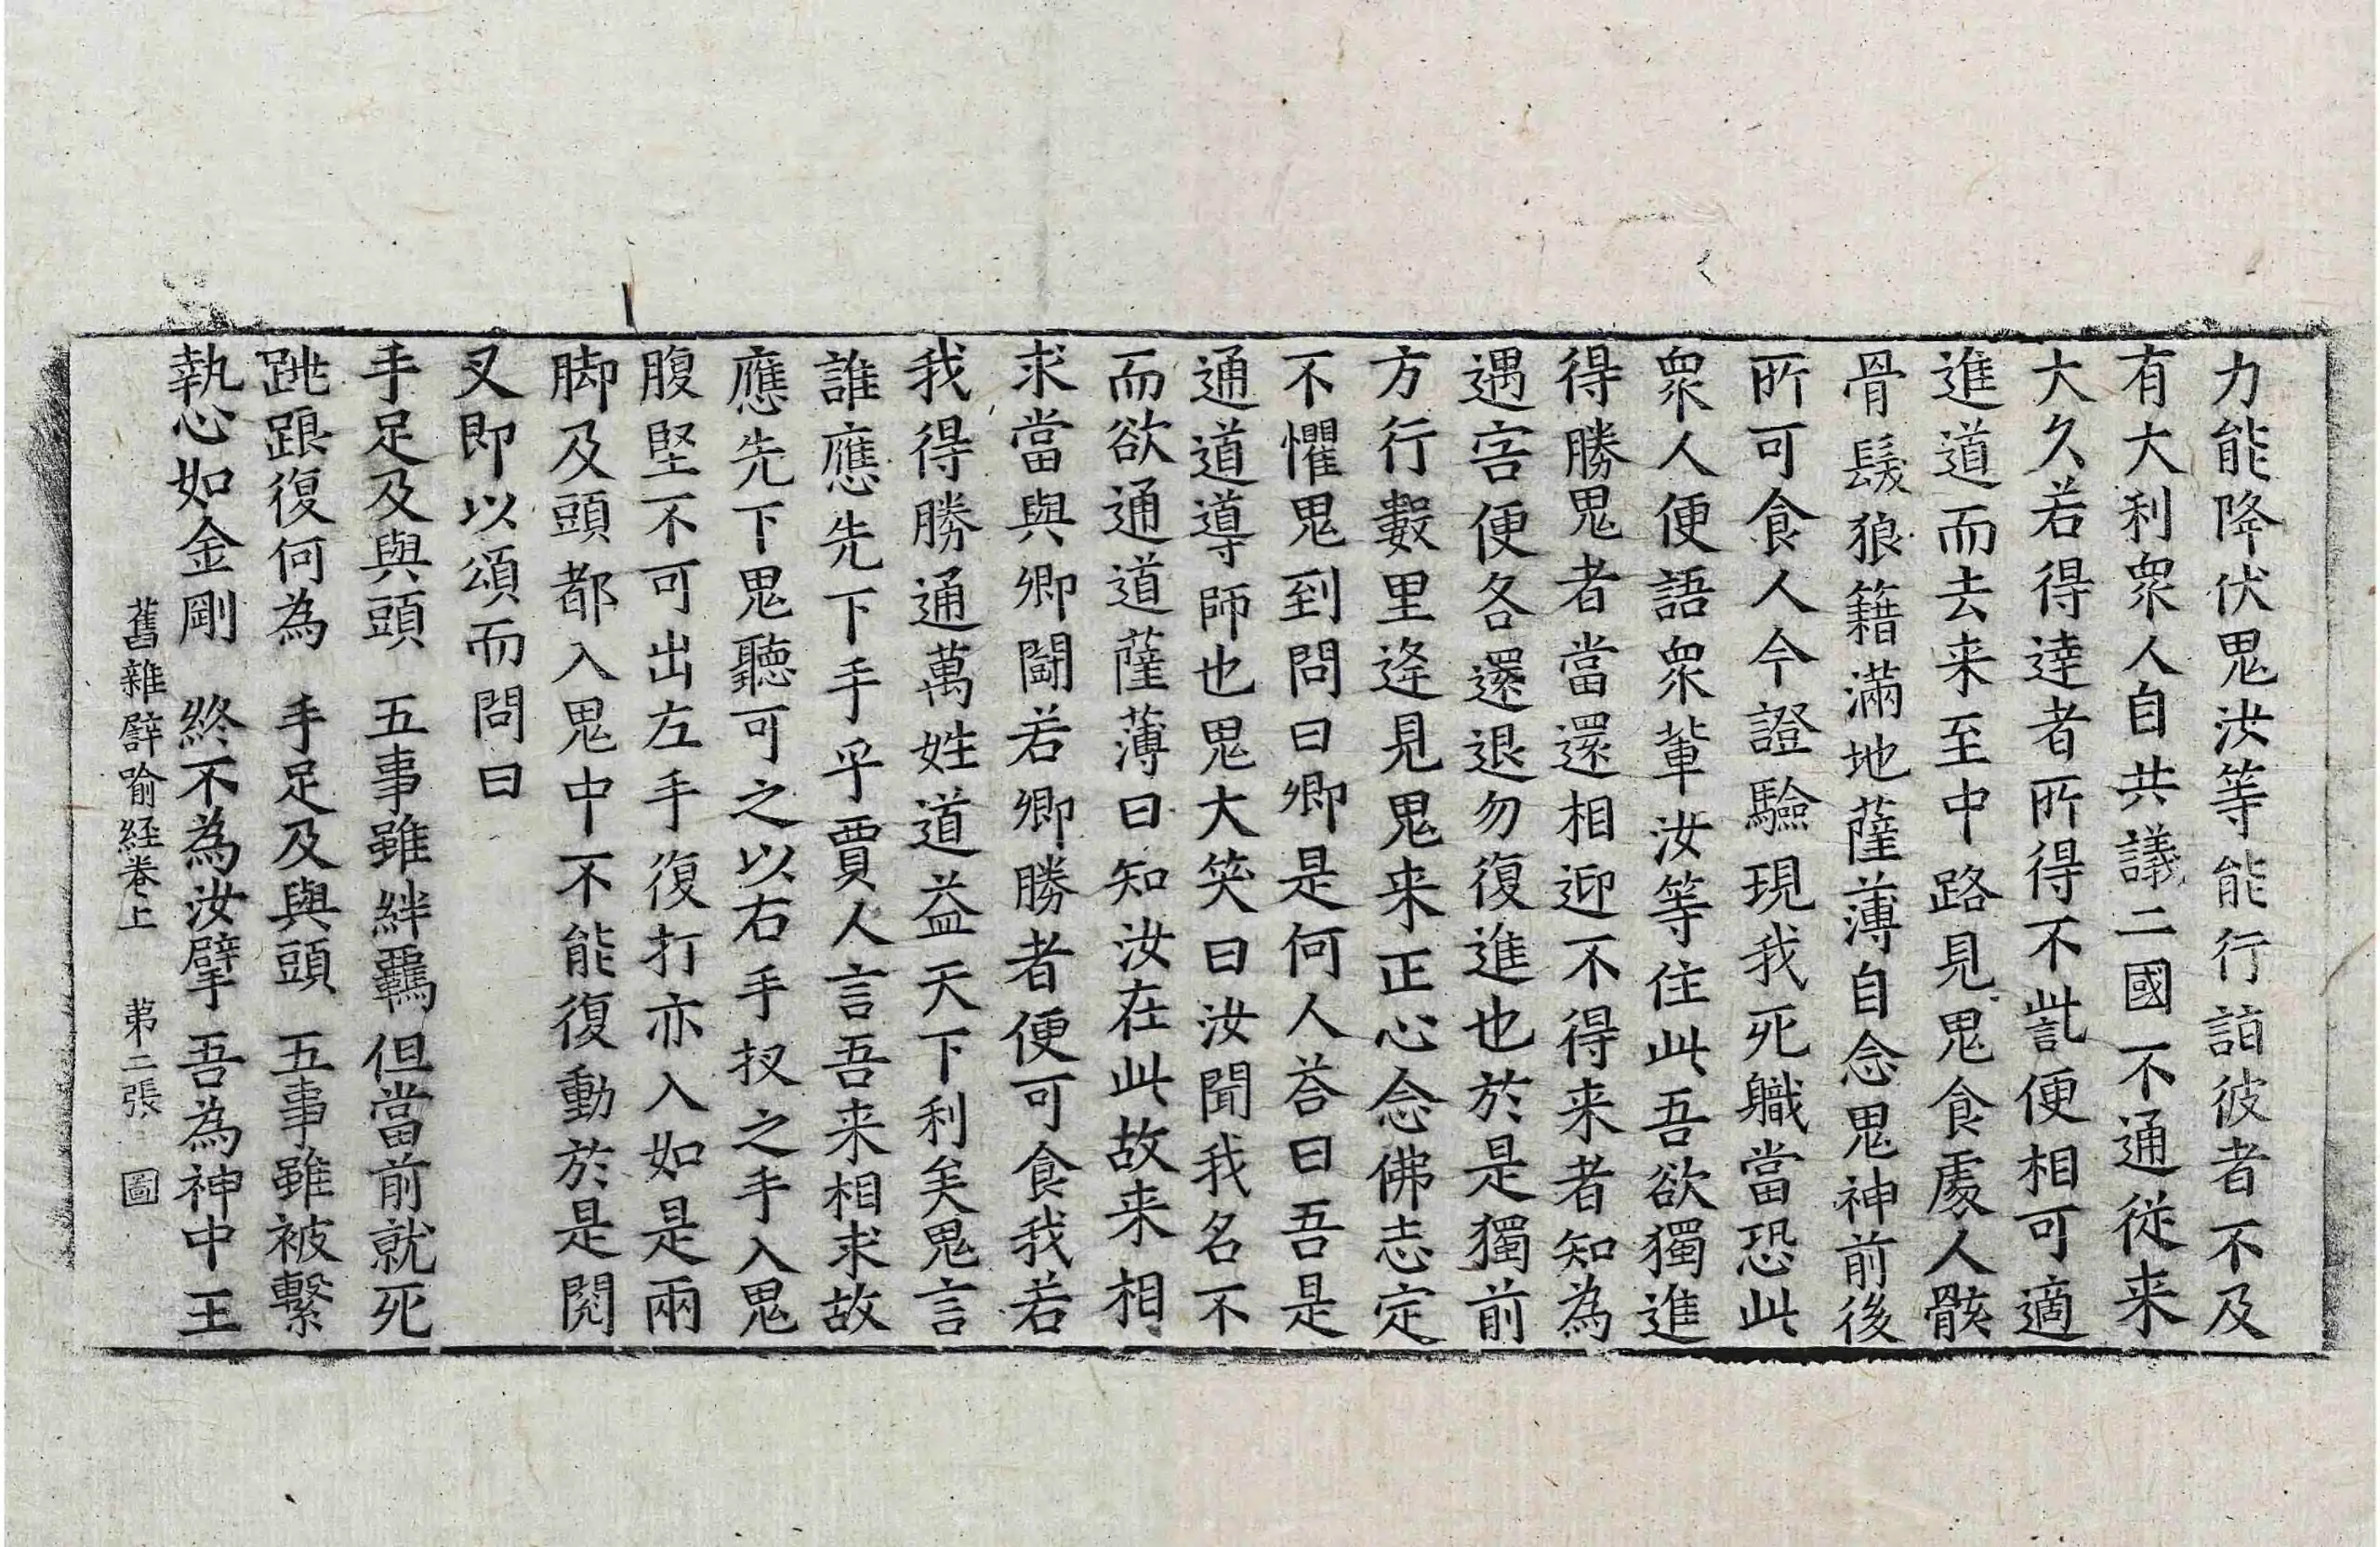 力能降伏鬼汝等能行詣彼者不及
有大利衆人自共議二國不通従来
大久若得達者所得不訾便相可適
進道而去来至中路見鬼食處人骸
骨髮狼籍滿地薩薄自念鬼神前後
所可食人今證驗現我死職當恐此
衆人便語衆輩汝等住此吾欲獨進
得勝鬼者當還相迎不得来者知為
遇害便各還退勿復進也於是獨前
方行數里逢見鬼来正心念佛志定
不懼鬼到問曰卿是何人荅曰吾是
通道導師也鬼大笑曰汝聞我名不
而欲通道薩薄曰知汝在此故来相
求當與卿鬪若卿勝者便可食我若
我得勝通萬姓道益天下利矣鬼言
誰應先下手乎賈人言吾来相求故
應先下鬼聽可之以右手扠之手入鬼
腹堅不可出左手復打亦入如是兩
脚及頭都入鬼中不能復動於是閱
叉即以頌而問曰
手足及與頭　五事雖絆羈但當前就死
跳踉復何為　手足及與頭　五事雖被繫
執心如金剛　終不為汝擘吾為神中王
舊雜譬喻経卷上　苐二張　圖